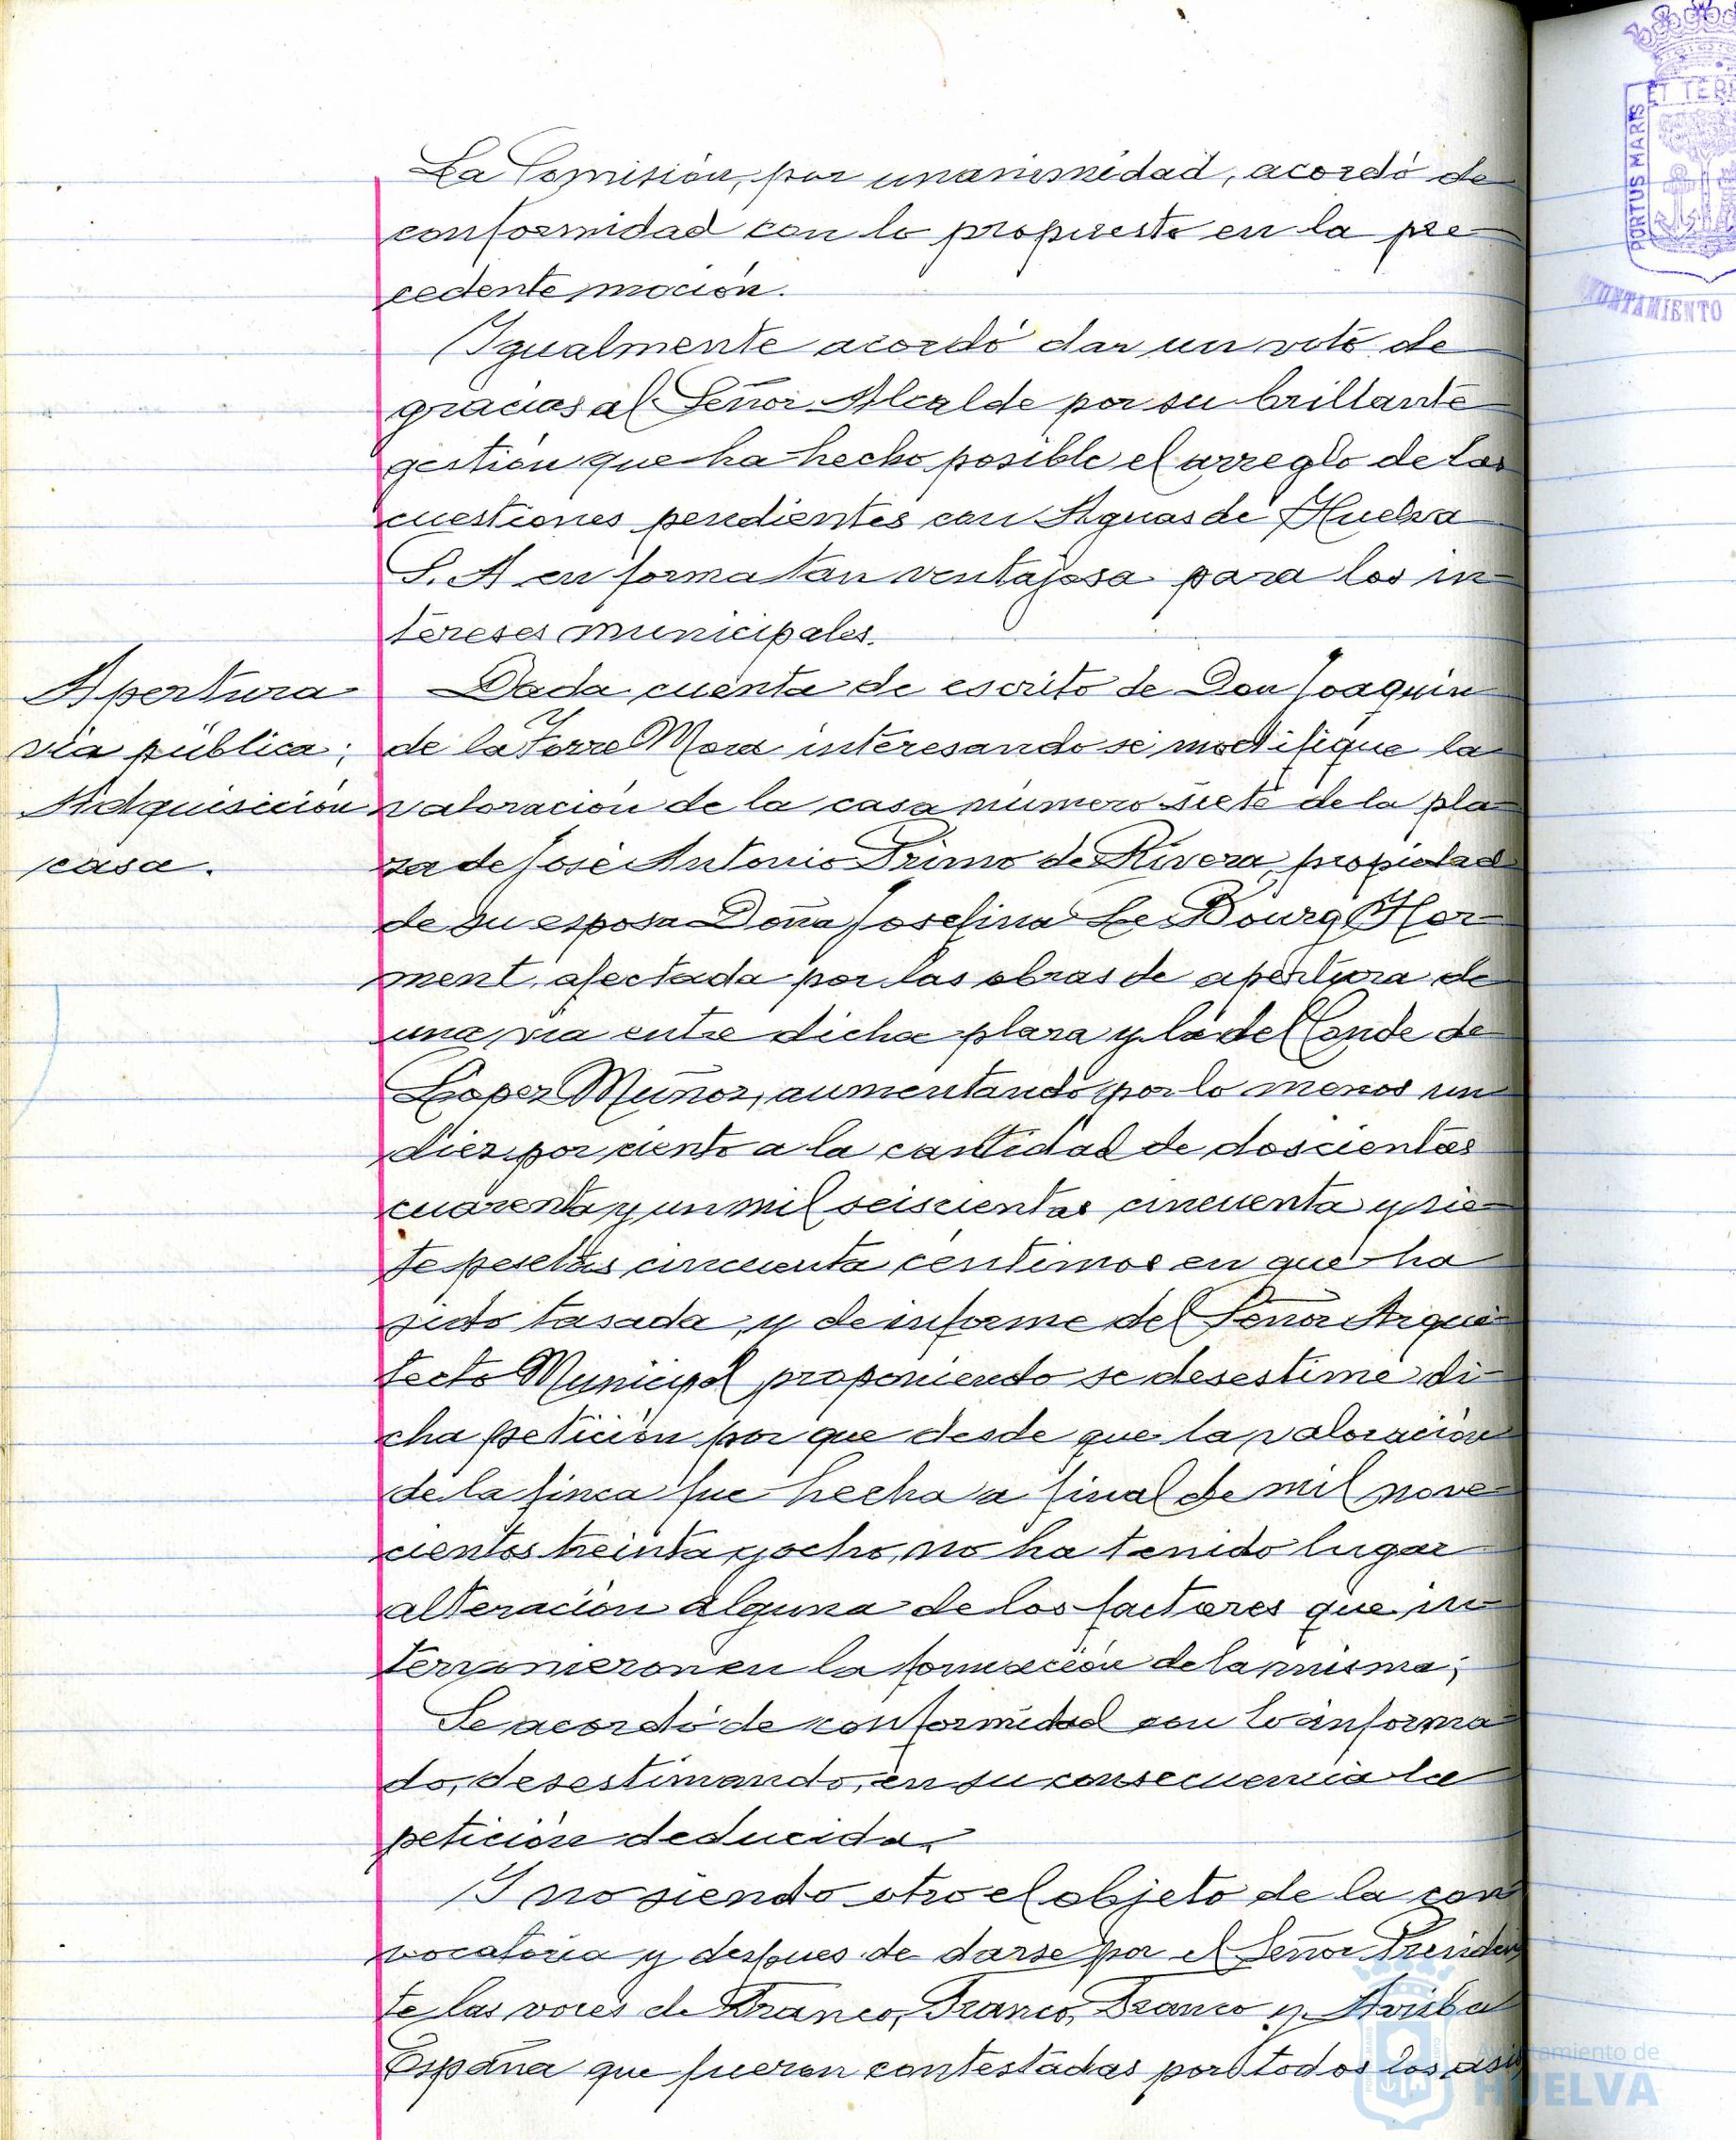 La Comisión, por unanimidad, acordó de
conformidad con lo propuesto en la pre
cedente moción.
Igualmente acordó dar un voto de
gracias al Señor Alcalde por su brillante
gestión que ha hecho posible el arreglo de las
cuestiones pendientes con Aguas de Huelva
S. A en forma tan ventajosa para los in-
tereses municipales.
Apertura
vía pública;
Adquisición
casa.
Dada cuenta de escrito de Don Joaquin
de la Torre Mora interesando se modifique la
valoración de la casa número siete de la pla-
za de José Antonio Primo de Rivera, propiedad
de su esposa Doña Joselina Le Bourg Hor-
ment, afectada por las obras de apertura de
una via entre dicha plaza y la del Conde de
López Muñoz, aumentando por lo menos un
diez por ciento a la cantidad de doscientas
cuarenta y un mil seiscientas cincuenta y sie-
te pesetas cincuenta centimos en que ha
sido tasada, y de informe del Señor Arqui-
tecto Municipal proponiendo se desestime di-
cha petición por que desde que la valoración
de la finca fue hecha a final de mil nove-
cientos treinta y ocho, no ha tenido lugar
alteración alguna de los factores que in-
tervinieron en la formación de la misma;
Se acordó de conformidad con lo informa-
do, desestimando, en su consecuencia la
petición deducida.
Y no siendo otro el objeto de la con
vocatoria y despues de darse por el Señor Presiden
te las voces de Franco, Franco, Franco y Arriba
España que fueron contestadas por todos los asis
PORTUS MARIS
ET TERR
UNTAMIENTO
Ayuntamiento de
HUELVA